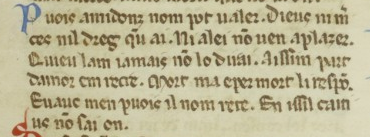 Puois amidonz nom pot ualer. Dieus ni m̃
ces nil dreg qu ai. Ni alei nõ uen aplazer.
Quieu lam iamais nõ lo dirai. Aissim part
damor em recre. Mort ma eper mort li respõ.
Euauc men puois il nom rete. En issil caiti
us nõ sai on.